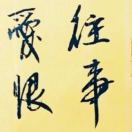 往事
愛恨